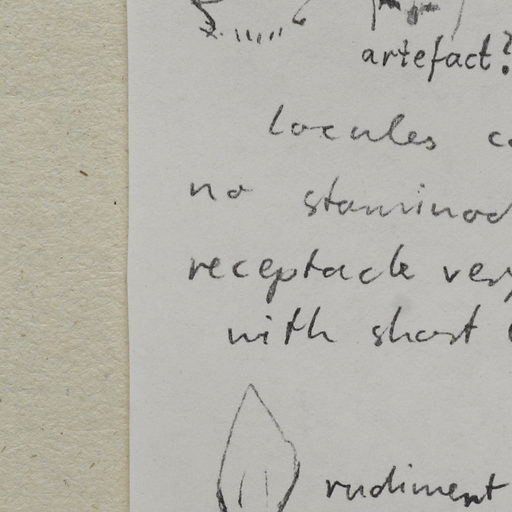 artefact?
locules
no staminod
receptacle very
with short
rudiment